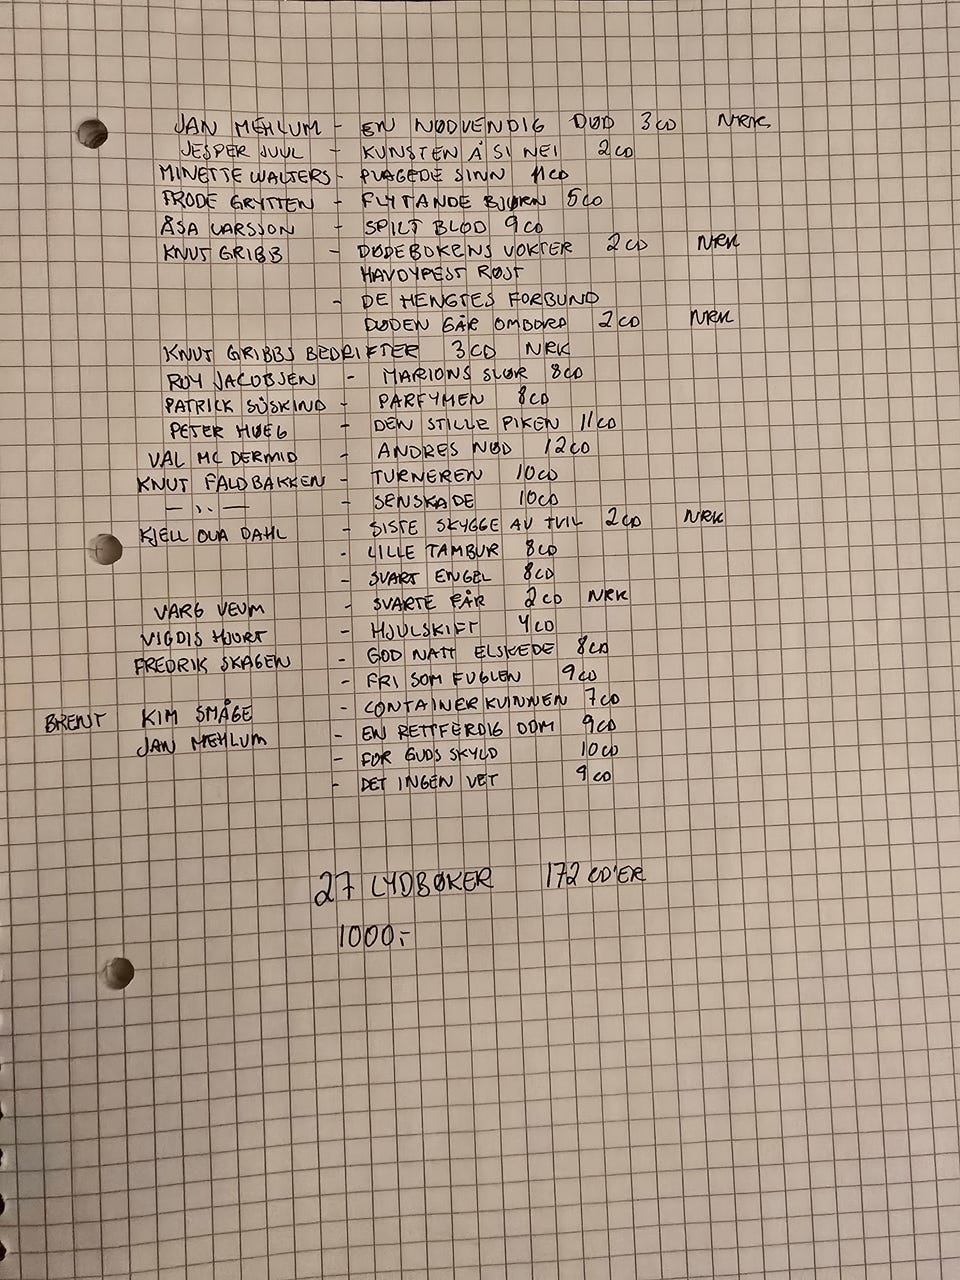 JAN MEHLUM - EN NØDVENDIG DØD 3CD NRK
JESPER JUUL - KUNSTEN Å SI NEI 2CD
MINETTE WALTERS - PLAGEDE SINN 11CD
FRODE GRYTTEN - FLYTANDE BJØRN 5CD
ÅSA LARSSON - SPILT BLOD 9CD
KNUT GRIBB - DØDEBOKENS VOKTER 2CD NRK
HAVDYPEST RØST
- DE HENGTES FORBUND
DØDEN GÅR OMBORD 2CD NRK
KNUT GRIBBS BEDRIFTER 3CD NRK
ROY JACOBSEN - MARIONS SLØR 8CD
PATRICK SÜSKIND - PARFYMEN 8CD
PETER HØEG - DEN STILLE PIKEN 11CD
VAL MC DERMID - ANDRES NØD 12CD
KNUT FALDBAKKEN - TURNEREN 10CD
— ,, — - SENSKADE 10CD
KJELL OLA DAHL - SISTE SKYGGE AV TVIL 2CD NRK
- LILLE TAMBUR 8CD
- SVART ENGEL 8CD
VARG VEUM - SVARTE FÅR 2CD NRK
VIGDIS HJORT - HJULSKIFT 4CD
FREDRIK SKAGEN - GOD NATT ELSKEDE 8CD
- FRI SOM FUGLEN 9CD
BRENT KIM SMÅGE - CONTAINER KVINNEN 7CD
JAN MEHLUM - EN RETTFERDIG DOM 9CD
- FOR GUDS SKYLD 10CD
- DET INGEN VET 9CD
27 LYDBØKER 172 CD'ER
1000,-